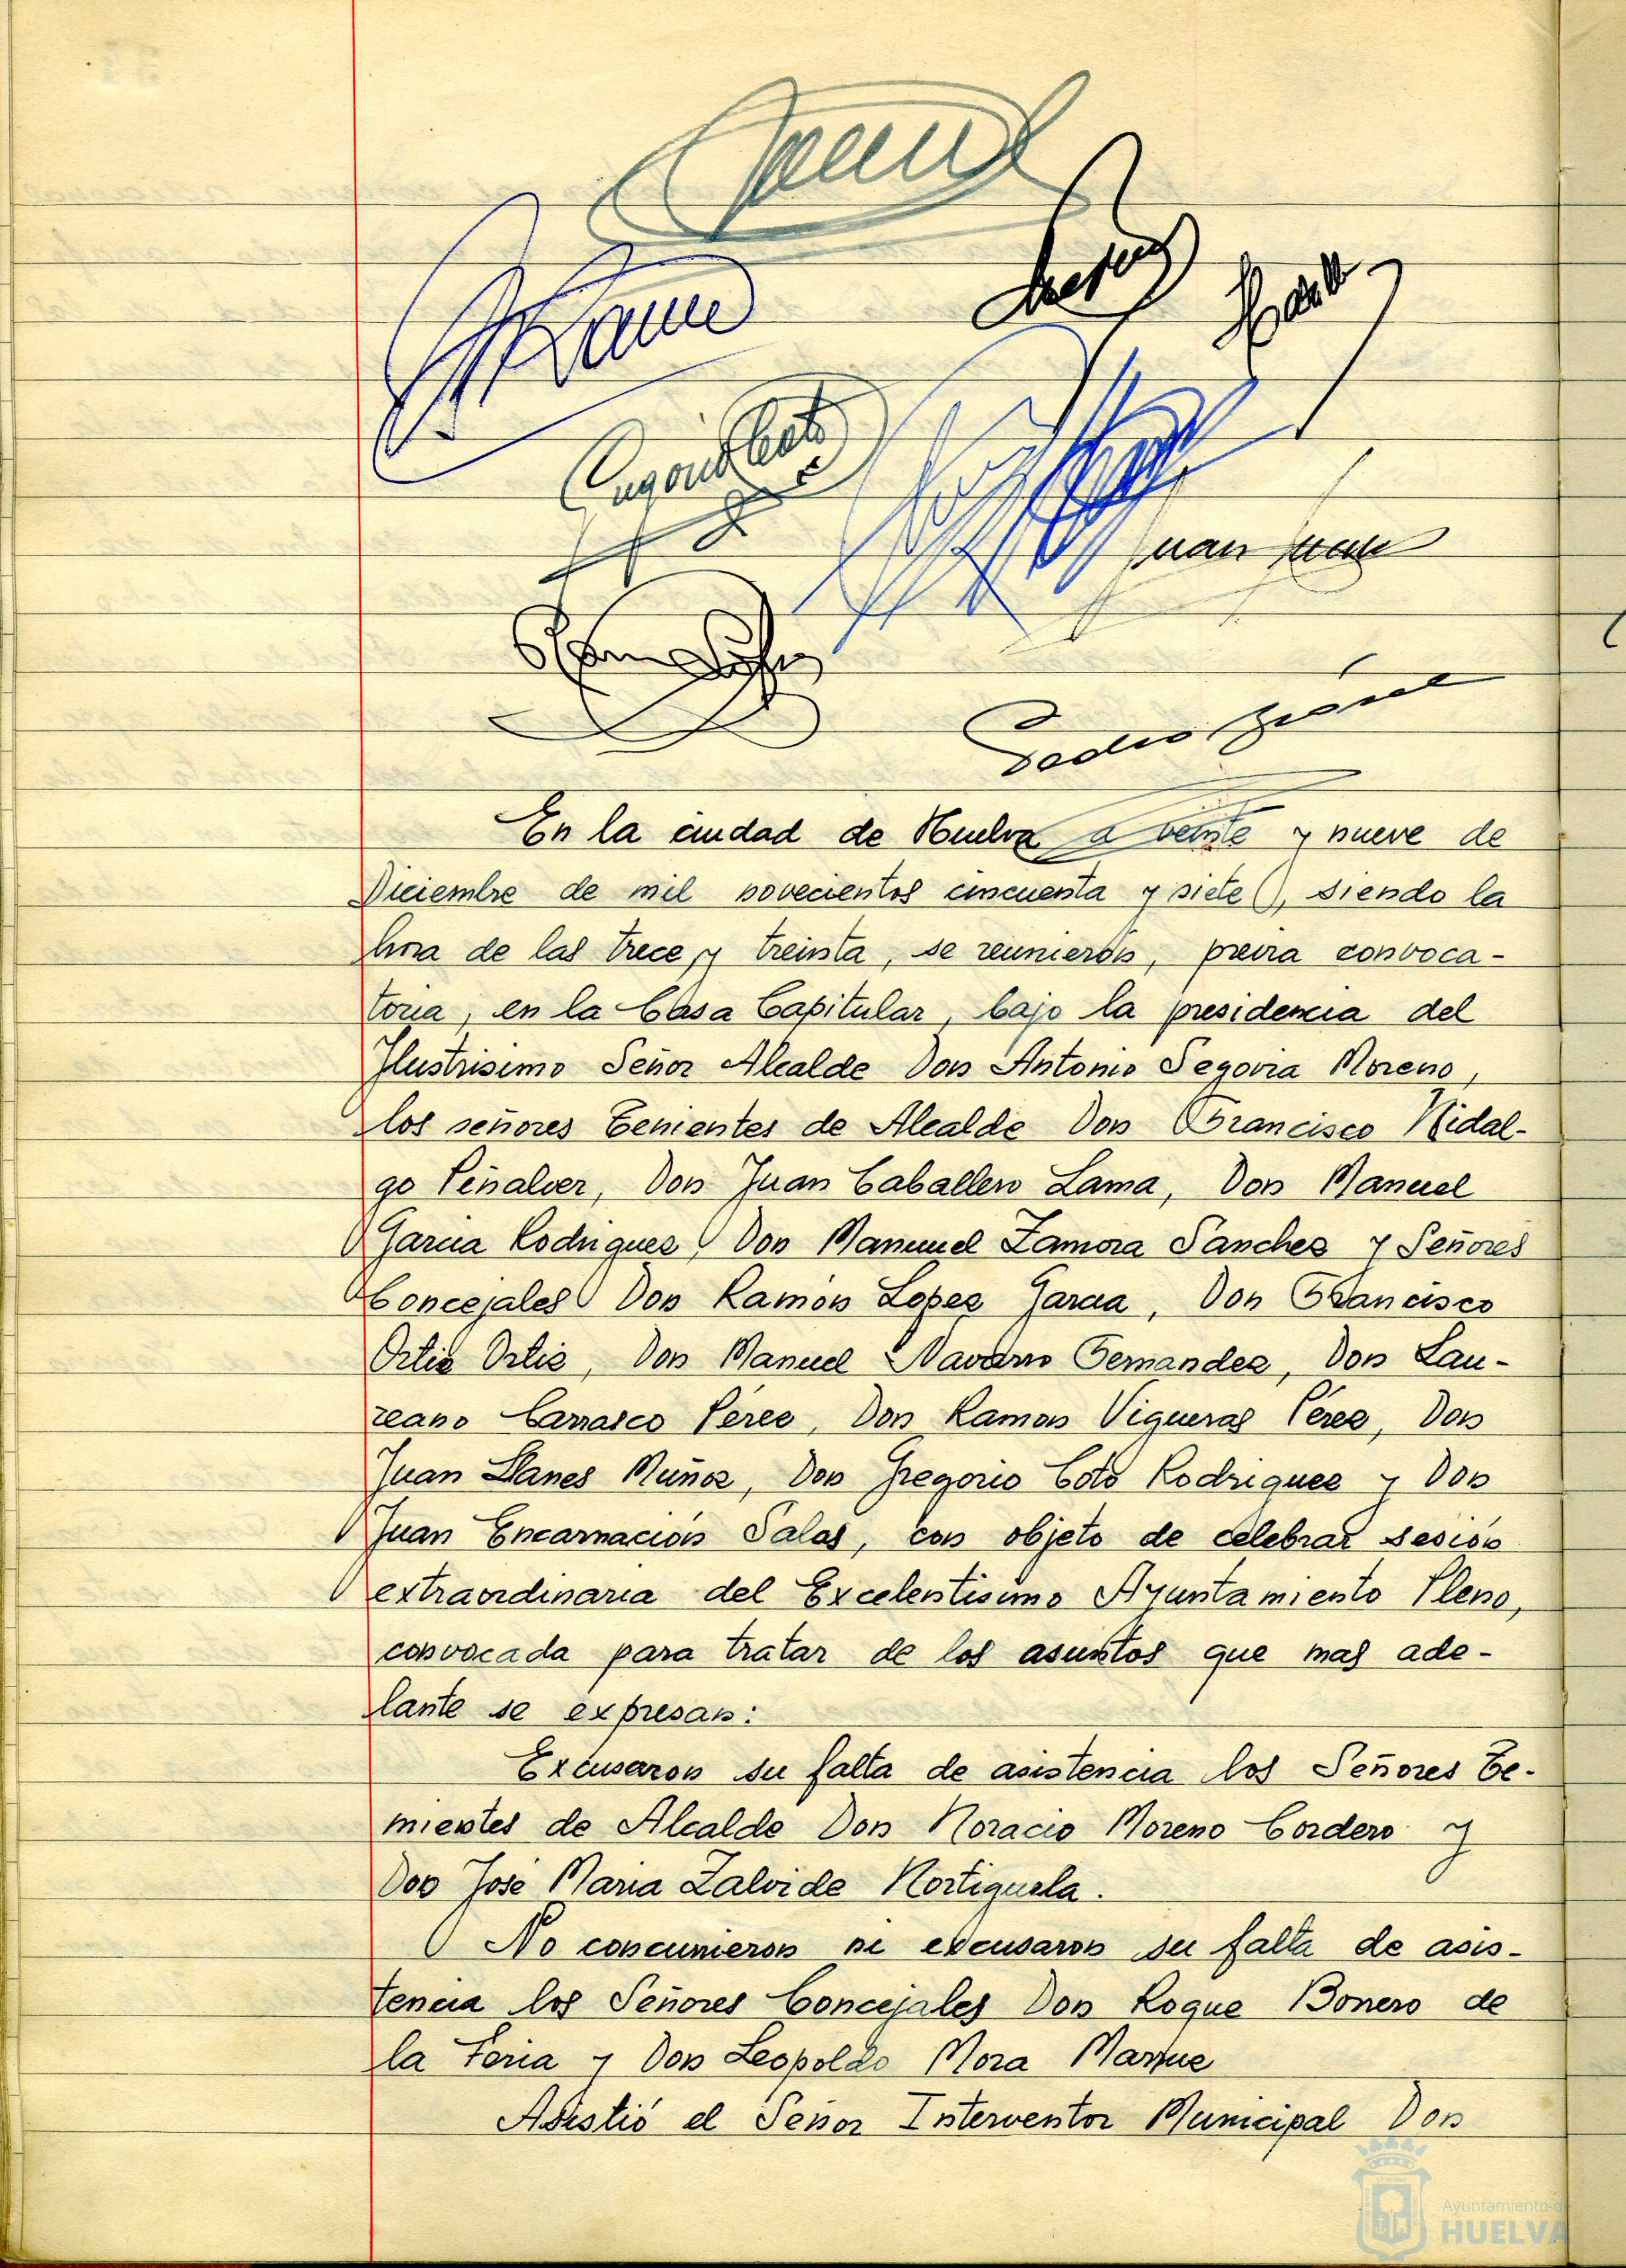 Juan Juan
En la ciudad de Huelva a veinte y nueve de
Diciembre de mil novecientos cincuenta y siete, siendo la
hora de las trece y treinta, se reunieron, previa convoca-
toria, en la Casa Capitular, bajo la presidencia del
Ilustrisimo Señor Alcalde Don Antonio Segovia Moreno,
los señores Tenientes de Alcalde Don Francisco Hidal-
go Peñalver, Don Juan Caballero Lama, Don Manuel
Garcia Rodriguez, Don Manuel Zamora Sanchez y Señores
Concejales Don Ramón Lopez Garcia, Don Francisco
Ortiz Ortiz, Don Manuel Navarro Fernandez, Don Lau-
reano Carrasco Pérez, Don Ramon Vigueras Pérez, Don
Juan Llanes Muñoz, Don Gregorio Coto Rodriguez y Don
Juan Encarnación Salas, con objeto de celebrar sesión
extraordinaria del Excelentisimo Ayuntamiento Pleno,
convocada para tratar de los asuntos que mas ade-
lante se expresan:
Excusaron su falta de asistencia los Señores Te-
nientes de Alcalde Don Horacio Moreno Cordero y
Don José Maria Zalvide Hortiguela.
No concurrieron ni excusaron su falta de asis-
tencia los Señores Concejales Don Roque Bonero de
la Feria y Don Leopoldo Mora
Asistió el Señor Interventor Municipal Don
Ayuntamiento de
HUELVA